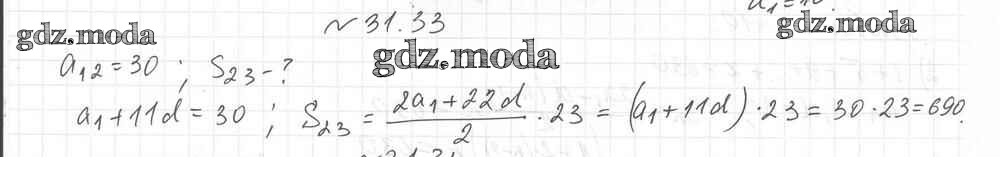 a₁=10.
№31.33
gdz.moda gdz.moda gdz.moda
a₁₂=30 ; S₂₃-?
a₁+11d=30 ; S₂₃ = (2a₁+22d)/2 · 23 = (a₁+11d)·23 = 30·23=690.